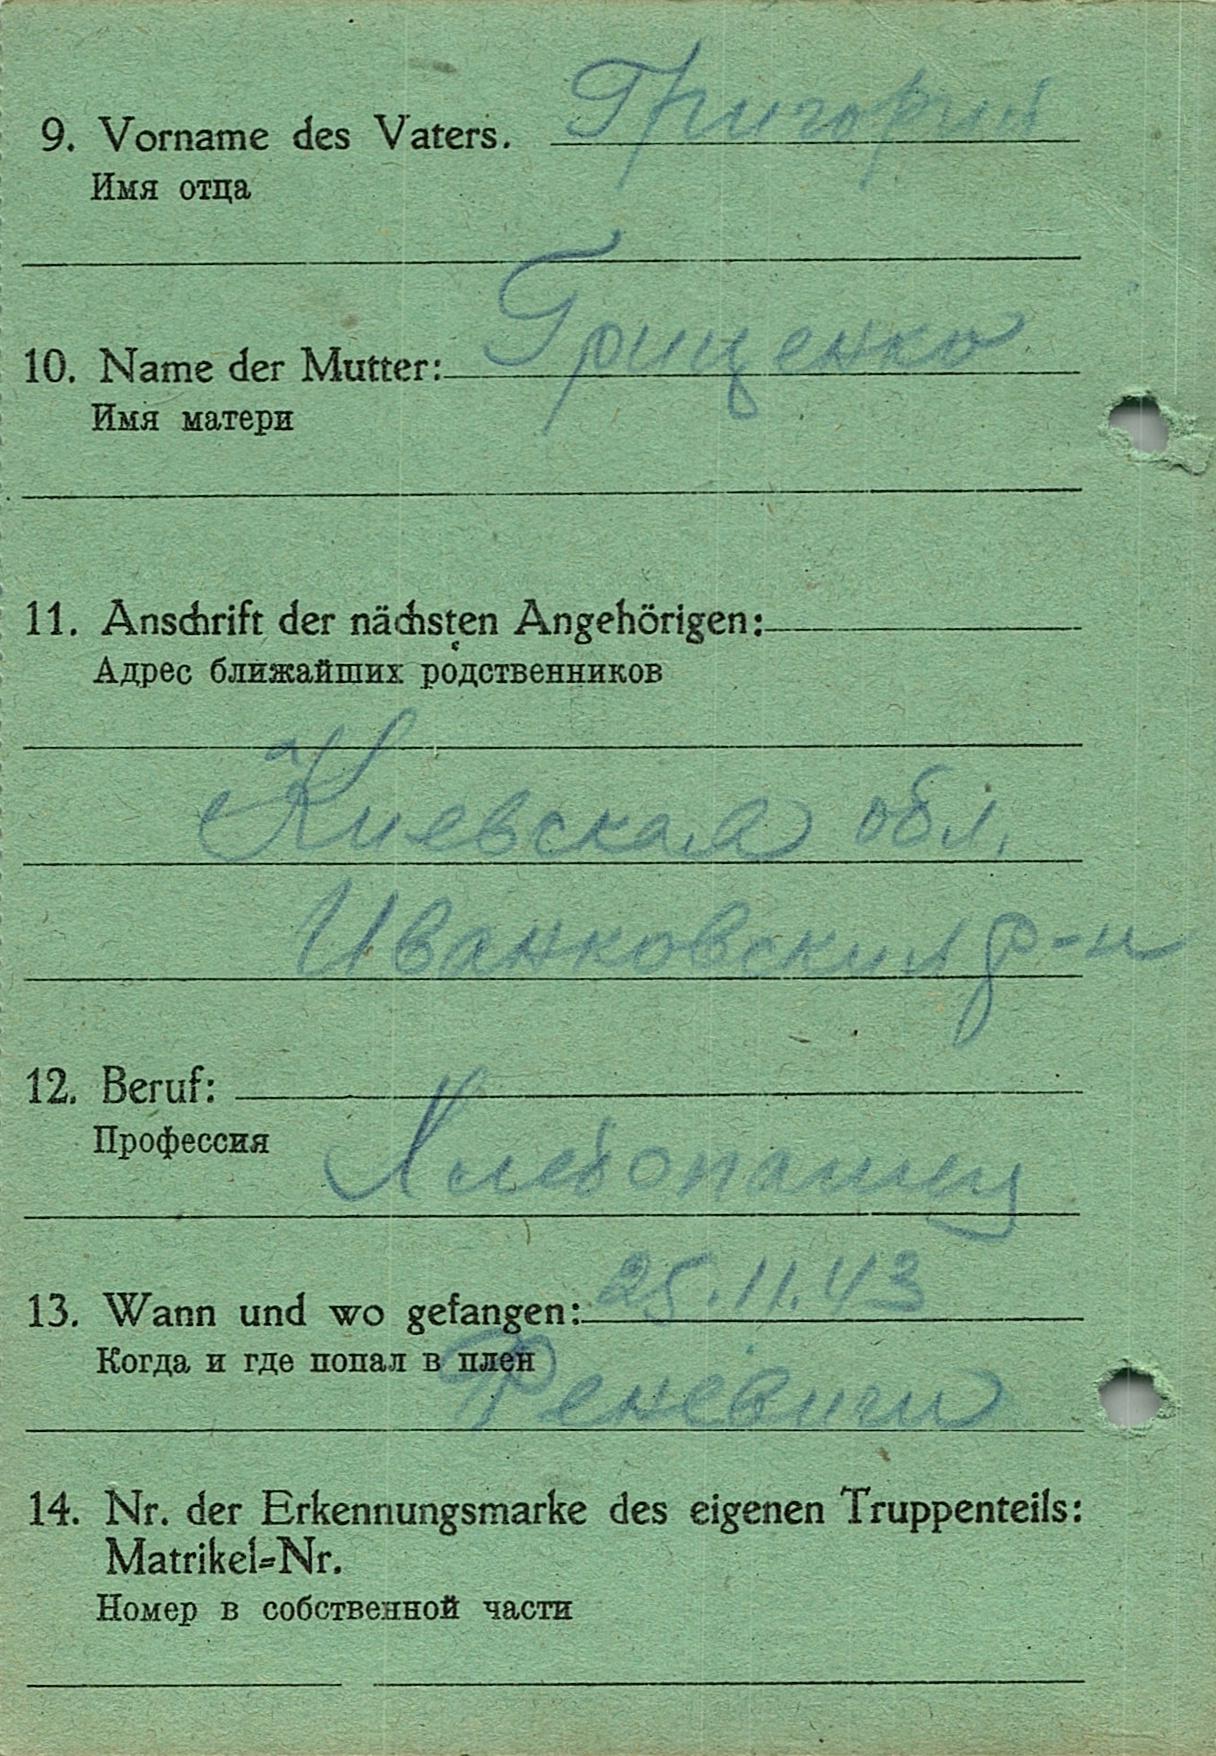 9. Vorname des Vaters. Григорий
Имя отца
10. Name der Mutter: Гриценко
Имя матери
11. Anschrift der nächsten Angehörigen:
Адрес ближайших родственников
Киевская обл.
Иванковский р-н
12. Beruf:
Профессия
Хлебопашец
13. Wann und wo gefangen: 25.11.43
Когда и где попал в плен
14. Nr. der Erkennungsmarke des eigenen Truppenteils:
Matrikel=Nr.
Номер в собственной части